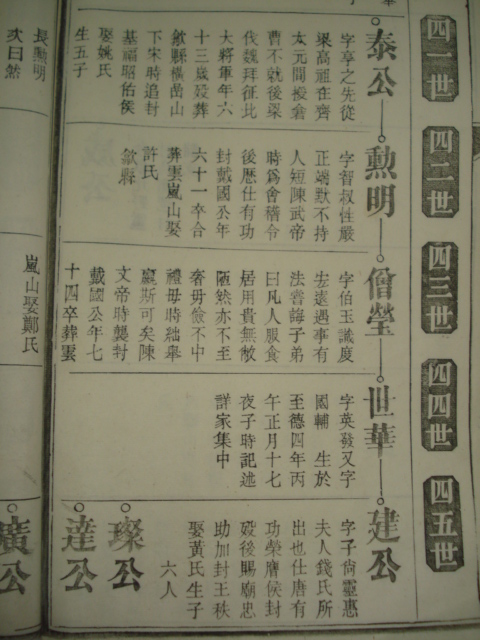 四一世
四二世
四三世
四四世
四五世
泰公
字享之先從
梁高祖在齊
太元間授倉
曹不就後梁
伐魏拜征比
大將軍年六
十三歲殁葬
歙縣橫嵒山
下宋時追封
基福昭佑侯
娶姚氏
生五子
勳明
字智叔性嚴
正端默不持
人短陳武帝
時爲會稽令
後歷仕有功
封戴國公年
六十一卒合
葬雲嵐山娶
許氏
歙縣
僧瑩
字伯玉識度
去遠遇事有
法嘗誨子弟
曰凡人服食
居用貴無敝
陋然亦不至
奢毋儉不中
禮毋時絀舉
嬴斯可矣陳
文帝時襲封
戴國公年七
十四卒葬雲
嵐山娶鄭氏
世華
字英發又字
國輔 生於
至德四年丙
午正月十七
夜子時記述
詳家集中
建公
字子尙靈惠
夫人錢氏所
出也仕唐有
功榮膺侯封
殁後賜廟忠
助加封王秩
娶黃氏生子
六人
璨公
達公
廣公
長勳明
次曰然